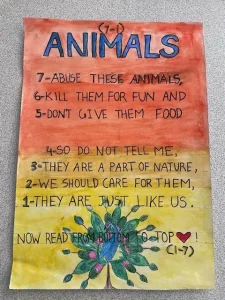 (7-1)
ANIMALS
7-ABUSE THESE ANIMALS,
6-KILL THEM FOR FUN AND
5-DON'T GIVE THEM FOOD
4-SO DO NOT TELL ME,
3-THEY ARE A PART OF NATURE,
2-WE SHOULD CARE FOR THEM,
1-THEY ARE JUST LIKE US.
NOW READ FROM BOTTOM TO TOP ♥!
(1-7)